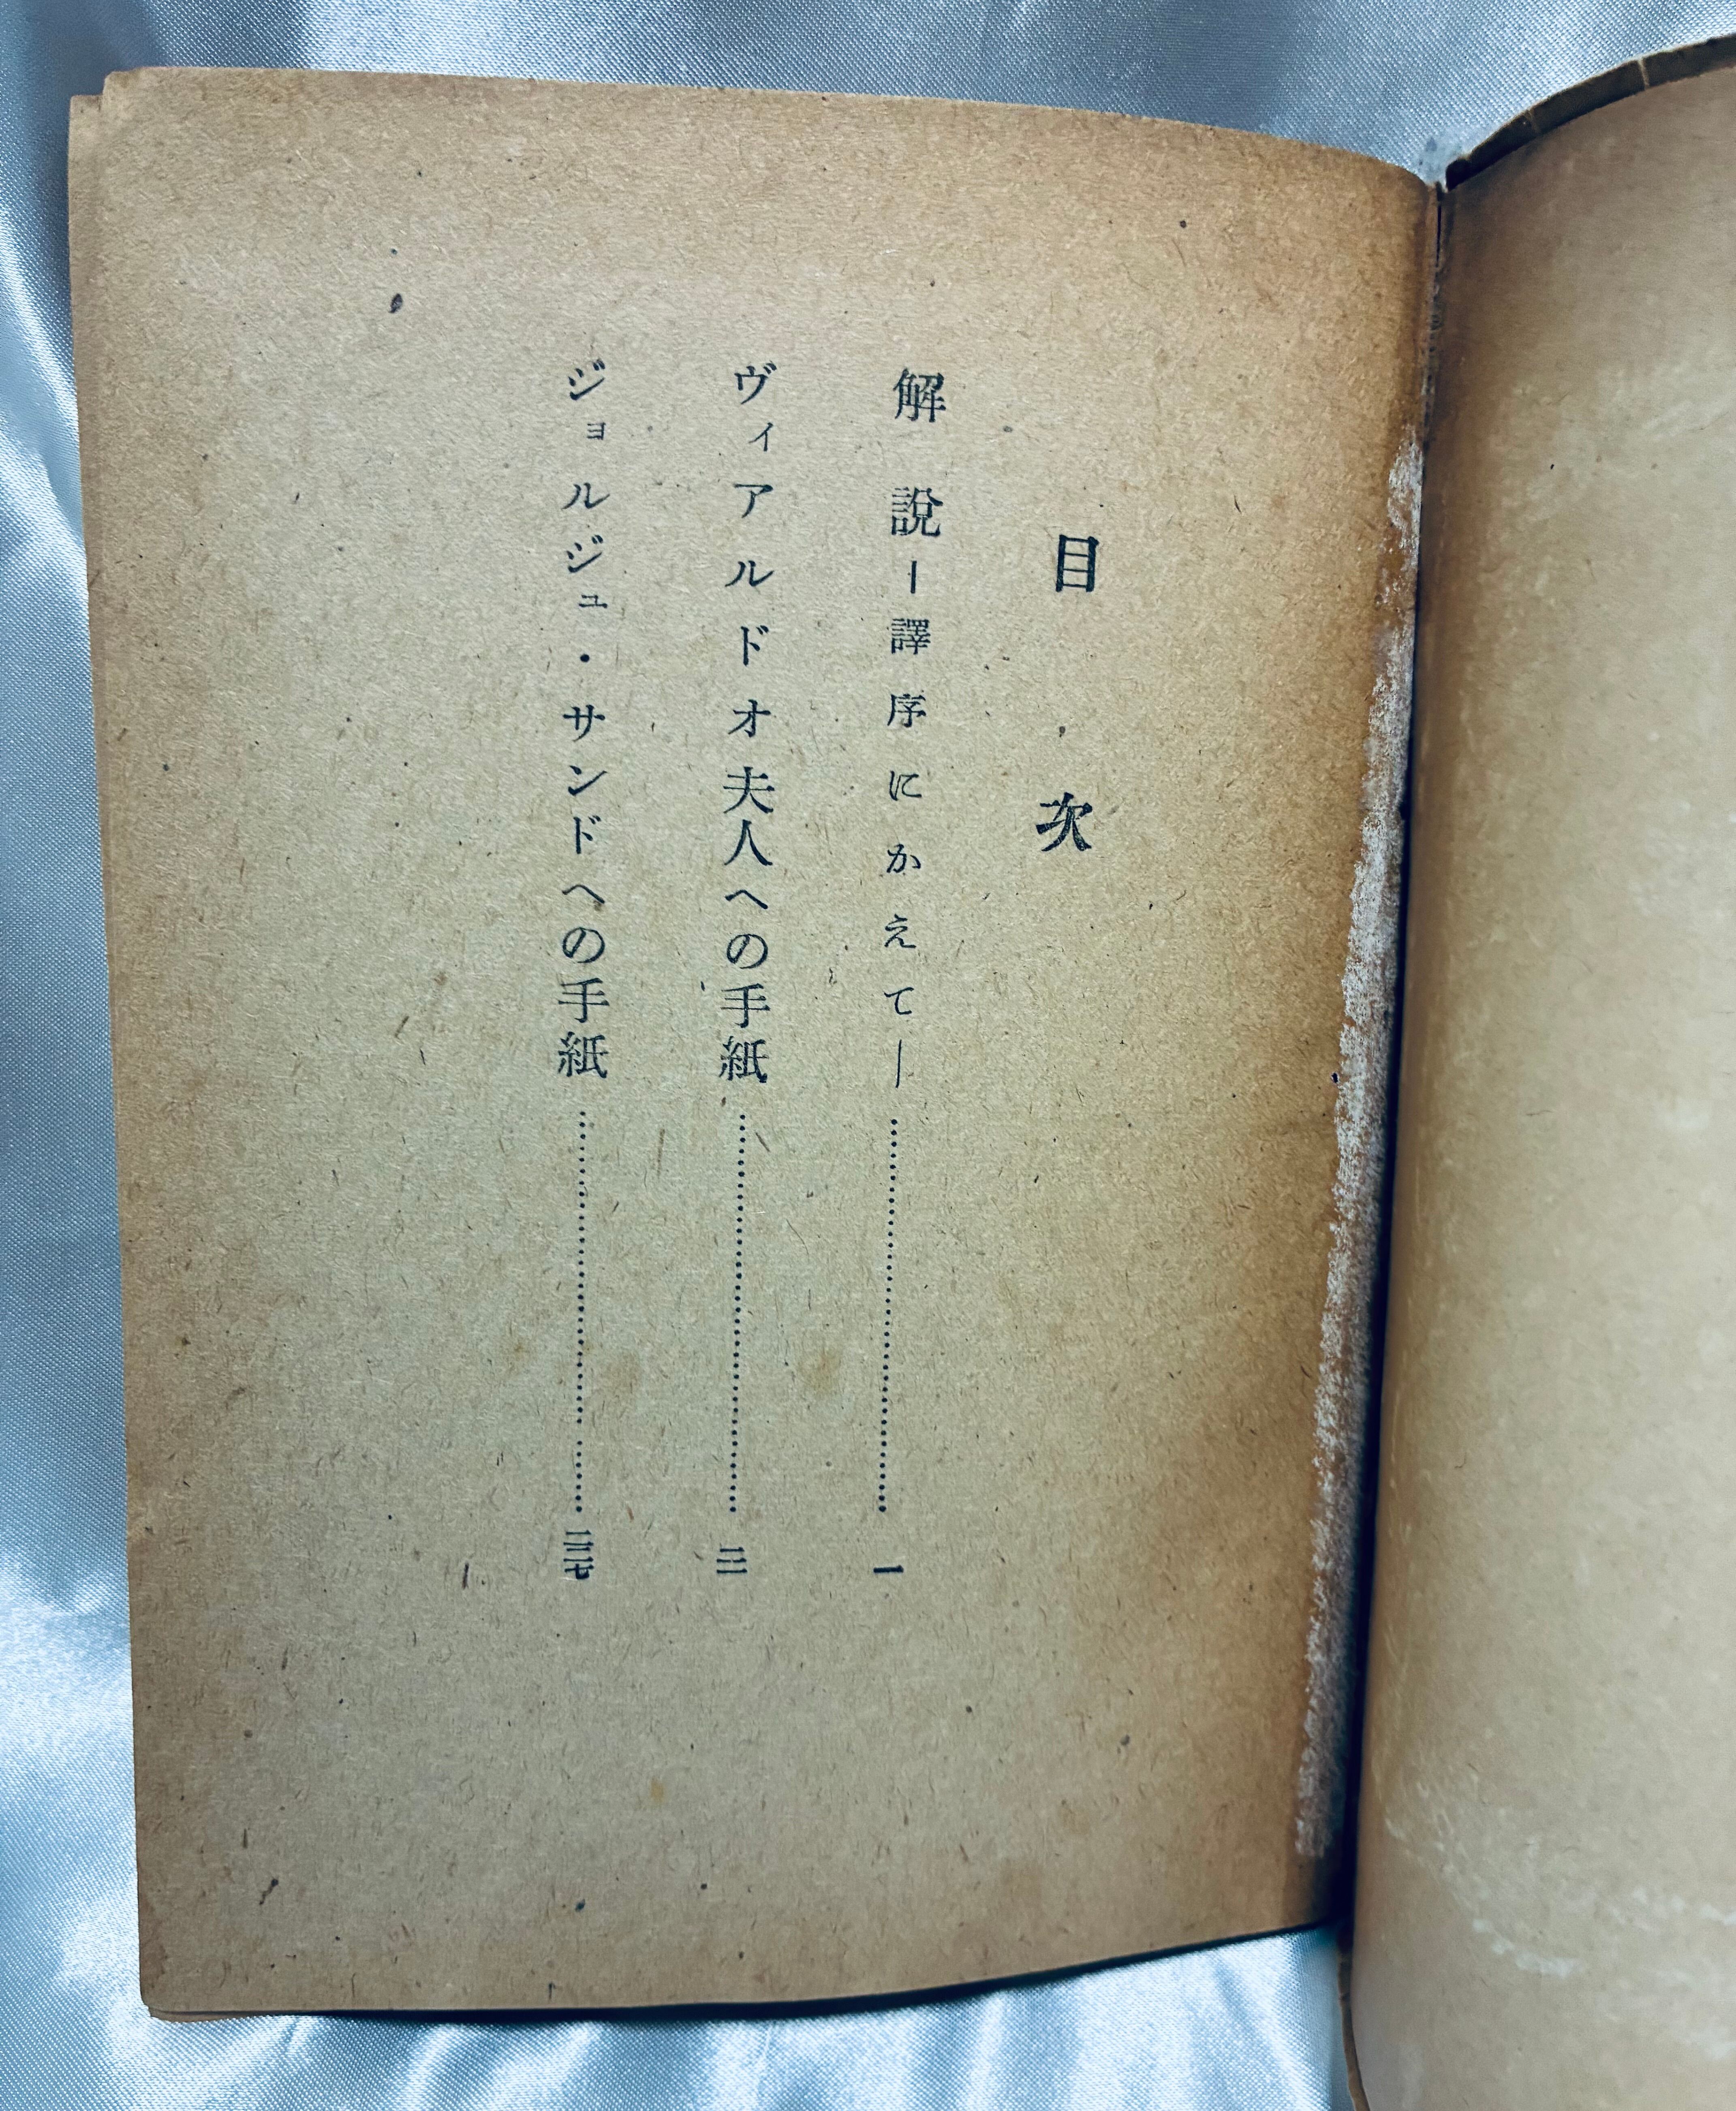 目次
解説―譯序にかえて―……一
ヴィアルドオ夫人への手紙……
ジョルジュ・サンドへの手紙……二三七